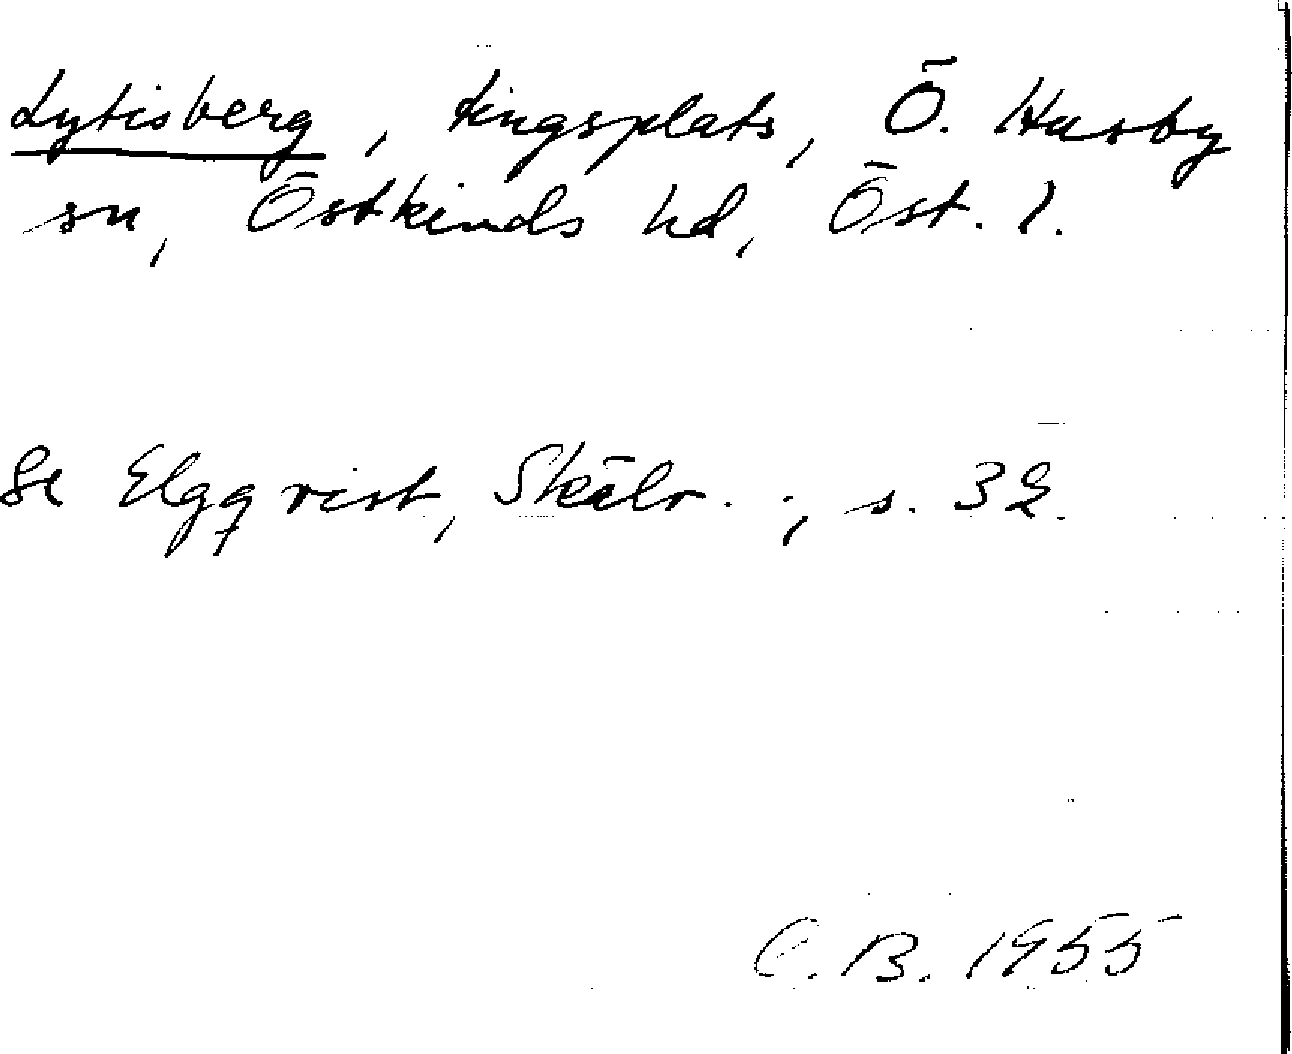 Lytisberg, tingsplats, Ö. Husby
sn, Östkinds hd, Öst. l.
Se Elgqvist, Skälv. ., s. 32.
C.B. 1955